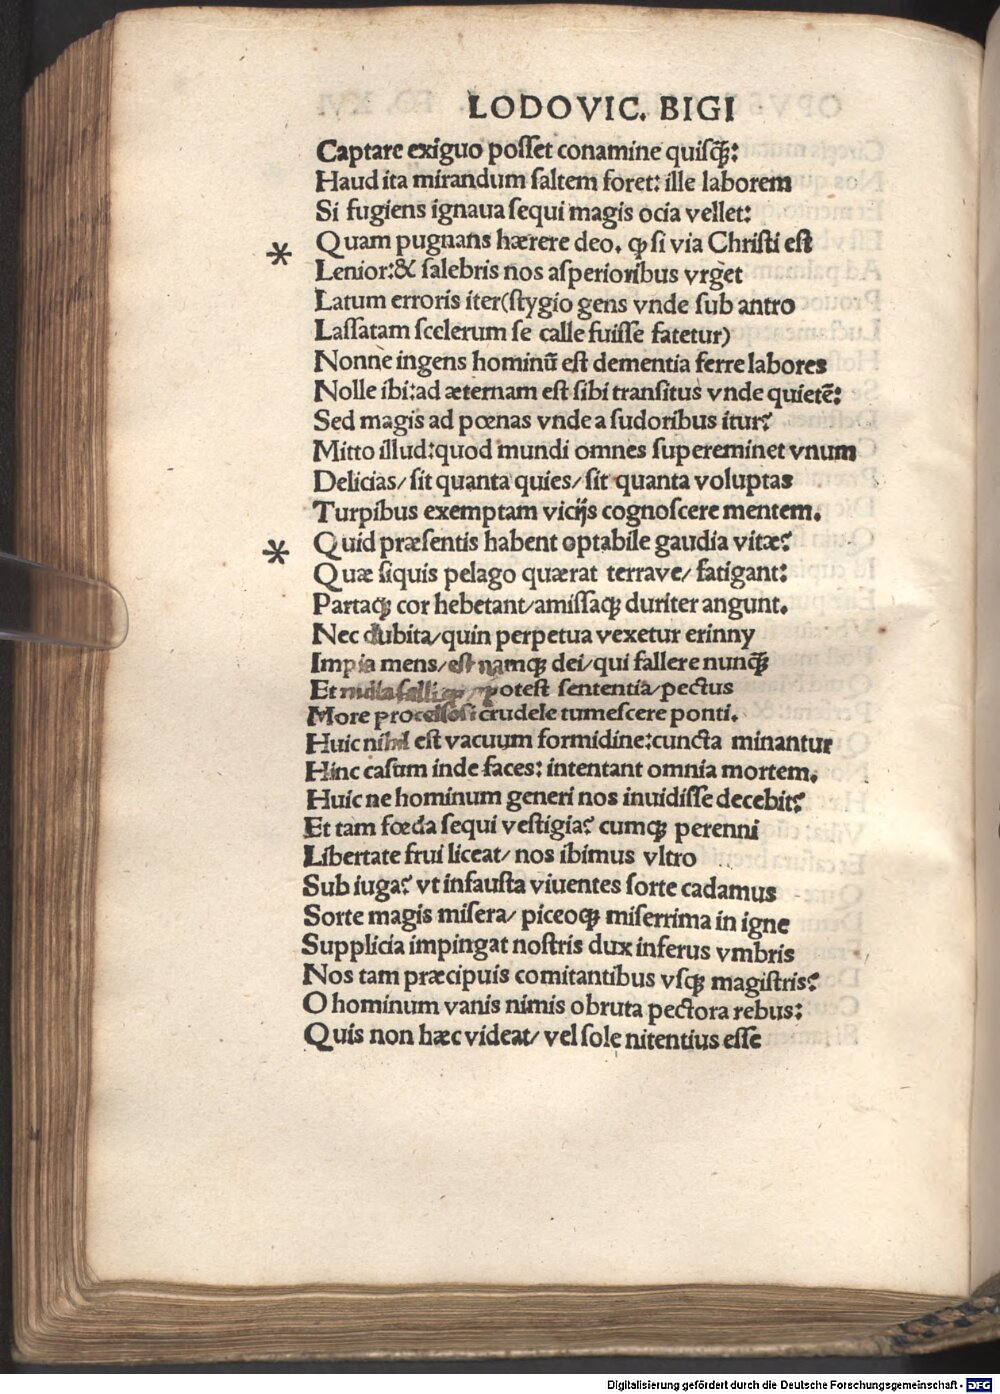 LODOVIC. BIGI
Captare exiguo posset conamine quisq̃:
Haud ita mirandum saltem foret: ille laborem
Si fugiens ignaua sequi magis ocia vellet:
* Quam pugnans hærere deo. ꝙ si via Christi est
Lenior:& salebris nos asperioribus vrget
Latum erroris iter(stygio gens vnde sub antro
Lassatam scelerum se calle fuisse fatetur)
Nonne ingens hominũ est dementia ferre labores
Nolle ibi:ad æternam est sibi transitus vnde quietẽ:
Sed magis ad pœnas vnde a sudoribus itur?
Mitto illud:quod mundi omnes supereminet vnum
Delicias/ sit quanta quies/ sit quanta voluptas
Turpibus exemptam vicijs cognoscere mentem.
* Quid præsentis habent optabile gaudia vitæ?
Quæ siquis pelago quærat terrave/ fatigant:
Partaq; cor hebetant/amissaq; duriter angunt.
Nec dubita/quin perpetua vexetur erinny
Impia mens/est namq; dei/qui fallere nunq̃;
Et nulla falli potest sententia/pectus
More procellosi crudele tumescere ponti.
Huic nihil est vacuum formidine:cuncta minantur
Hinc casum inde faces: intentant omnia mortem.
Huic ne hominum generi nos inuidisse decebit?
Et tam fœda sequi vestigia? cumq; perenni
Libertate frui liceat/ nos ibimus vltro
Sub iuga? vt infausta viuentes sorte cadamus
Sorte magis misera/ piceoq; miserrima in igne
Supplicia impingat nostris dux inferus vmbris
Nos tam præcipuis comitantibus vsq; magistris?
O hominum vanis nimis obruta pectora rebus:
Quis non hæc videat/ vel sole nitentius esse
Digitalisierung gefördert durch die Deutsche Forschungsgemeinschaft - DFG